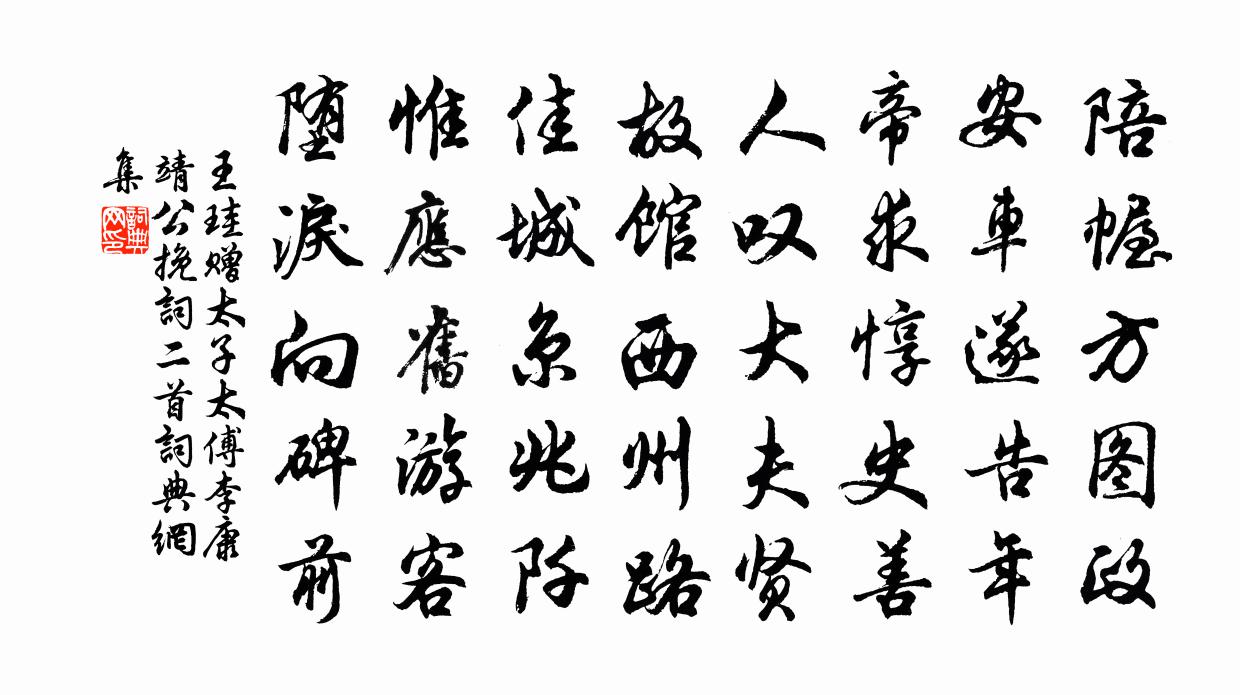 陪幄方图政
安車遂告年
帝求惇史善
人叹大夫贤
故馆西州路
佳城京兆阡
惟應舊游客
堕淚向碑前
王珪赠太子太傅李康
靖公挽詞二首詞典網
集
詞典网印